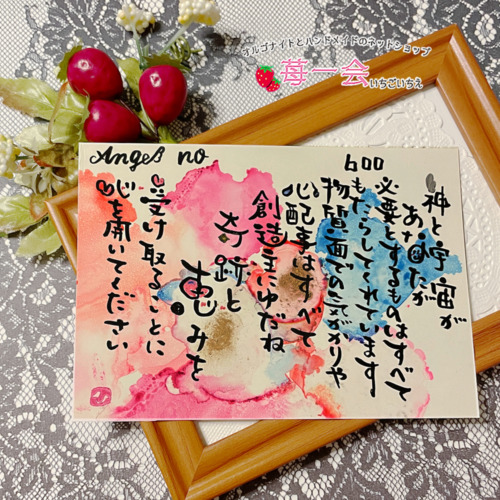 オルゴナイトとハンドメイドのネットショップ
苺一会
いちごいちえ
Angel no 600
神と宇宙が
あなたが
必要とするものはすべて
もたらしてくれています
物質面での気がかりや
心配事はすべて
創造主にゆだね
奇跡と
恵みを
受け取ることに
心を開いてください